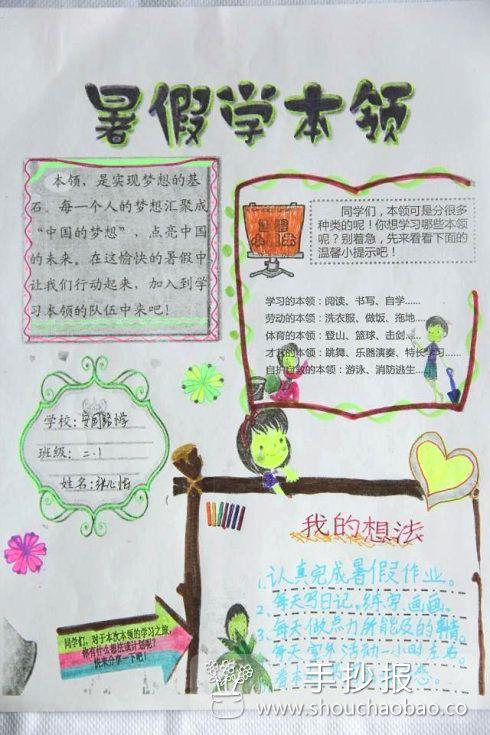 暑假学本领
本领，是实现梦想的基
石，每一个人的梦想汇聚成
“中国的梦想”，点亮中国
的未来。在这愉快的暑假中
让我们行动起来，加入到学
习本领的队伍中来吧！
同学们，本领可是分很多
种类的呢！你想学习哪些本领
呢？别着急，先来看看下面的
温馨小提示吧！
学习的本领：阅读、书写、自学……
劳动的本领：洗衣服、做饭、拖地……
体育的本领：登山、篮球、击剑……
才艺的本领：跳舞、乐器演奏、特长学习……
自护自救的本领：游泳、消防逃生……
学校：
班级：二.1
姓名：张心怡
我的想法
1.认真完成暑假作业。
2.每天写日记，练字，画画。
3.每天做点力所能及的事情。
每天室外活动一小时左右
看本
同学们，对于本次本领的学习之旅，
你有什么想法或计划呢？
快来分享一下吧！
手抄报
www.shouchaobao.co